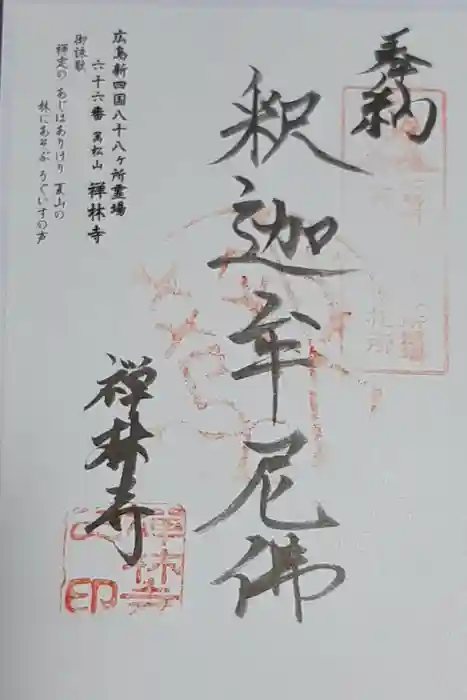 奉納
釈迦牟尼佛
広島新四国八十八ヶ所霊場
六十六番 萬松山 禅林寺
御詠歌
禅定の あじはありけり 夏山の
林にあそぶ うぐいすの声
禅林寺
禅林寺
印